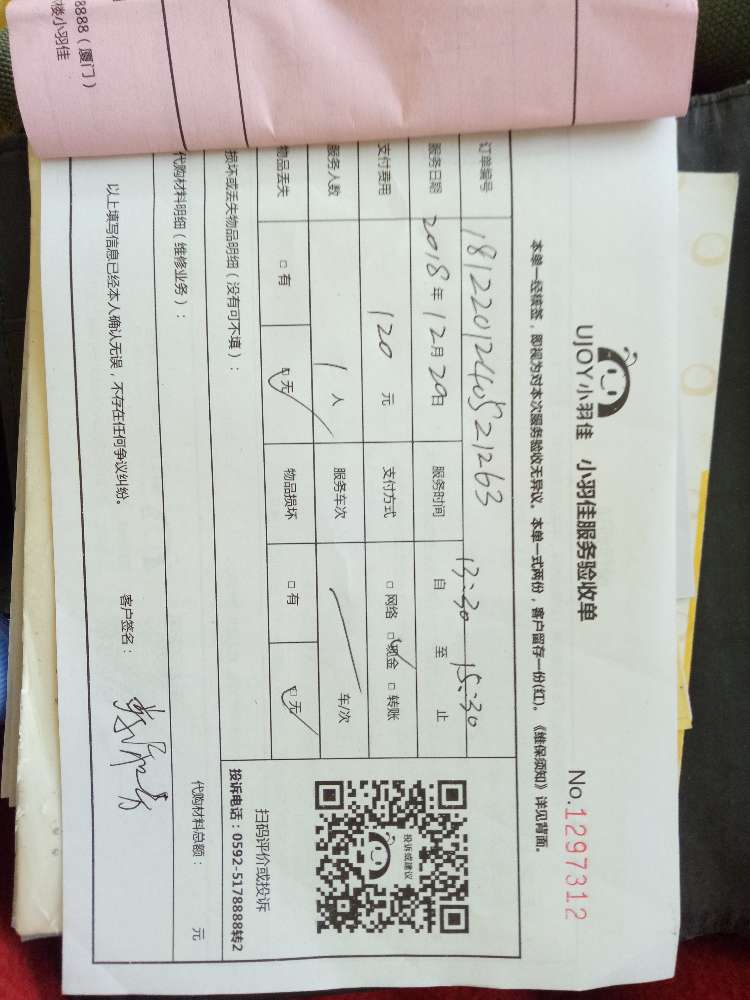 8888（厦门）
楼小羽佳
UJOY小羽佳 小羽佳服务验收单
No.1297312
本单一经核签，即视为对本次服务验收无异议。本单一式两份，客户留存一份(红)。《维保须知》详见背面。
订单编号 1812201240521263
服务日期 2018年12月20日 服务时间 自 13:30 至 15:30 止
支付费用 120 元 支付方式 □网络 □现金 □转账
服务人数 1 人 服务车次 车/次
物品丢失 □有 □无 物品损坏 □有 □无
投诉或建议
扫码评价或投诉
投诉电话：0592-5178888转2
损坏或丢失物品明细（没有可不填）：
代购材料明细（维修业务）： 代购材料总额： 元
以上填写信息已经本人确认无误，不存在任何争议纠纷。 客户签名：